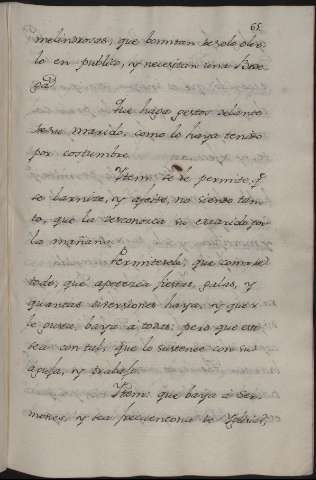 65.
melindrosas, que vomitan de solo oler-
lo en publico, y necesitan una Bode-
ga.
Que haga gestos delante
de su marido, como lo haya tenido
por costumbre.
Ytem: se le permite, q.e
se barnize, y afeite, no siendo tan-
to, que la desconozca su marido por
la mañana.
Permitesela, que como de
todo, que apetezca fiestas, galas, y
quantas diversiones haya, y que si
le gusta, baya à todas; pero que esto
sea con tal, que lo sustente con su
aguja, y trabajo.
Ytem: que baya à Ser-
mones, y sea frecuentona de Yglesias,